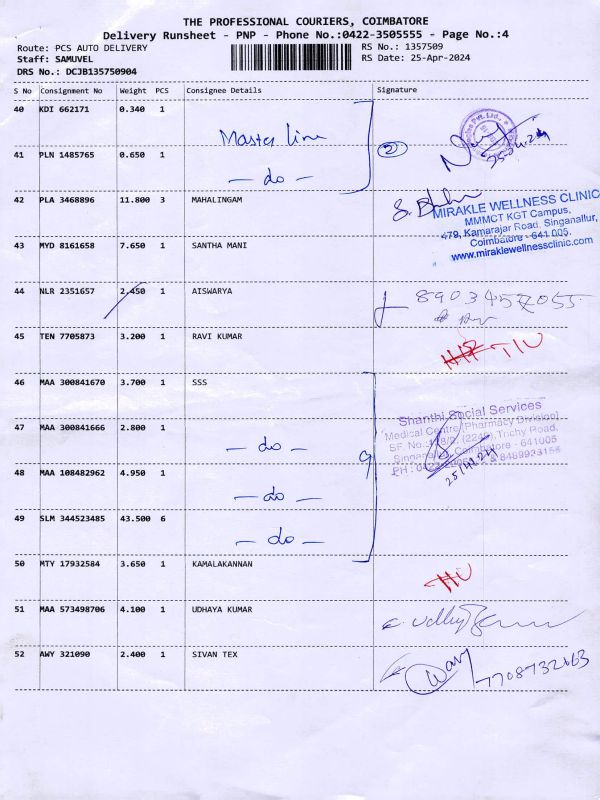 THE PROFESSIONAL COURIERS, COIMBATORE
Delivery Runsheet - PNP - Phone No.:0422-3505555 - Page No.:4
Route: PCS AUTO DELIVERY RS No.: 1357509
Staff: SAMUVEL RS Date: 25-Apr-2024
DRS No.: DCJB135750904
S No Consignment No Weight PCS Consignee Details Signature
40 KDI 662171 0.340 1 Master line
2
25.04.24
41 PLN 1485765 0.650 1 - do -
42 PLA 3468896 11.800 3 MAHALINGAM
MIRAKLE WELLNESS CLINIC
MMMCT KGT Campus,
479, Kamarajar Road, Singanallur,
Coimbatore - 641 005.
www.miraklewellnessclinic.com
43 MYD 8161658 7.650 1 SANTHA MANI
44 NLR 2351657 2.450 1 AISWARYA
45 TEN 7705873 3.200 1 RAVI KUMAR
46 MAA 300841670 3.700 1 SSS
Shanthi Social Services
Medical Centre (Pharmacy Division)
Trichy Road,
Coimbatore - 641005
25/4/24
47 MAA 300841666 2.800 1 - do -
9
48 MAA 108482962 4.950 1 - do -
49 SLM 344523485 43.500 6 - do -
50 MTY 17932584 3.650 1 KAMALAKANNAN
51 MAA 573498706 4.100 1 UDHAYA KUMAR
52 AWY 321090 2.400 1 SIVAN TEX